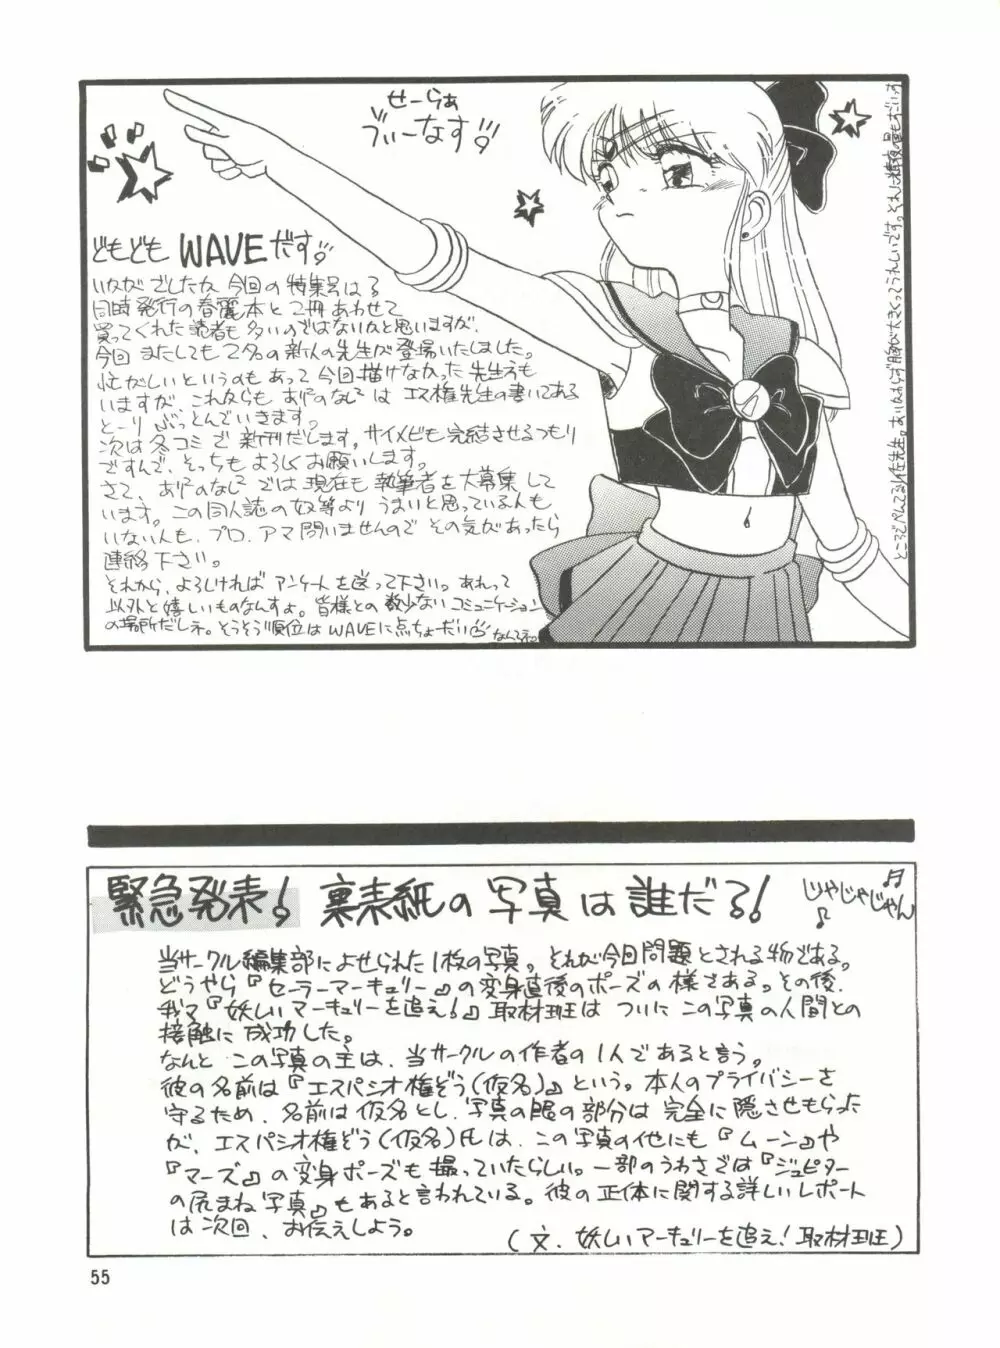 せーらぁ
ぶぃーなす!!
どもども WAVEだす!!
いかがでしたか 今回の特集号は?
同時発行の春麗本と2冊あわせて
買ってくれた読者も多いのではないかと思いますが、
今回 またしても 2名の新人の先生が登場いたしました。
忙がしいというのもあって今回描けなかった先生方も
いますが、これからも ありすのなしは エス権先生の書いてある
とーり ぶっとんでいきます。
次は冬コミで新刊だします。サイメビも完結させるつもり
ですんで、そっちも よろしくお願いします。
さて、ありすのなしでは 現在も執筆者を大募集して
います。この同人誌の奴等より うまいと思っている人も
いない人も、プロ、アマ問いませんので その気があったら
連絡下さい。
それから、よろしければ アンケートを送って下さい。あれって
以外と嬉しいものなんすよ。皆様との数少ないコミュニケーション
の場所だしネ。そうそう順位はWAVEに点ちょーだい なんてネっ
緊急発表! 裏表紙の写真は誰だ?!
じゃじゃじゃん
当サークル編集部によせられた1枚の写真。それが今回問題とされる物である。
どうやら『セーラーマーキュリー』の変身直後のポーズの様である。その後、
我々『妖しいマーキュリーを追え!』取材班は ついに この写真の人間との
接触に成功した。
なんと この写真の主は、当サークルの作者の1人であると言う。
彼の名前は『エスパシオ権ぞう(仮名)』という。本人のプライバシーを
守るため、名前は仮名とし、写真の眼の部分は 完全に隠させもらった
が、エスパシオ権ぞう(仮名)氏は、この写真の他にも『ムーン』や
『マーズ』の変身ポーズも撮っていたらしい。一部のうわさでは『ジュピター
の尻まね写真』もあると言われている。彼の正体に関する詳しいレポート
は次回、お伝えしよう。
(文、妖しいマーキュリーを追え!取材班)
55